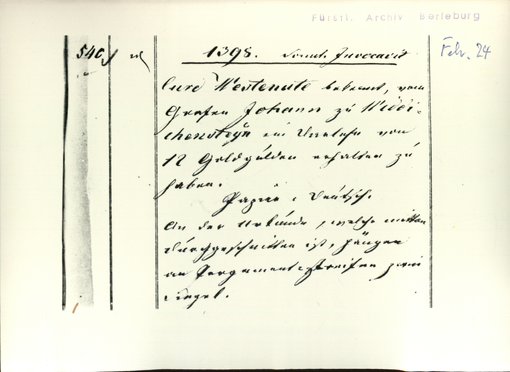 Fürstl. Archiv Berleburg
540
1398. Sonntag Invocavit
Febr. 24
Curd Westenute bekennt, vom
Grafen Johann zu Widdi-
chensteyn ein Darlehn von
12 Goldgülden erhalten zu
haben.
Papier, Deutsch.
An der Urkunde, welche mitten
durchgeschnitten ist, hängen
an Pergamentstreifen zwei
Siegel.